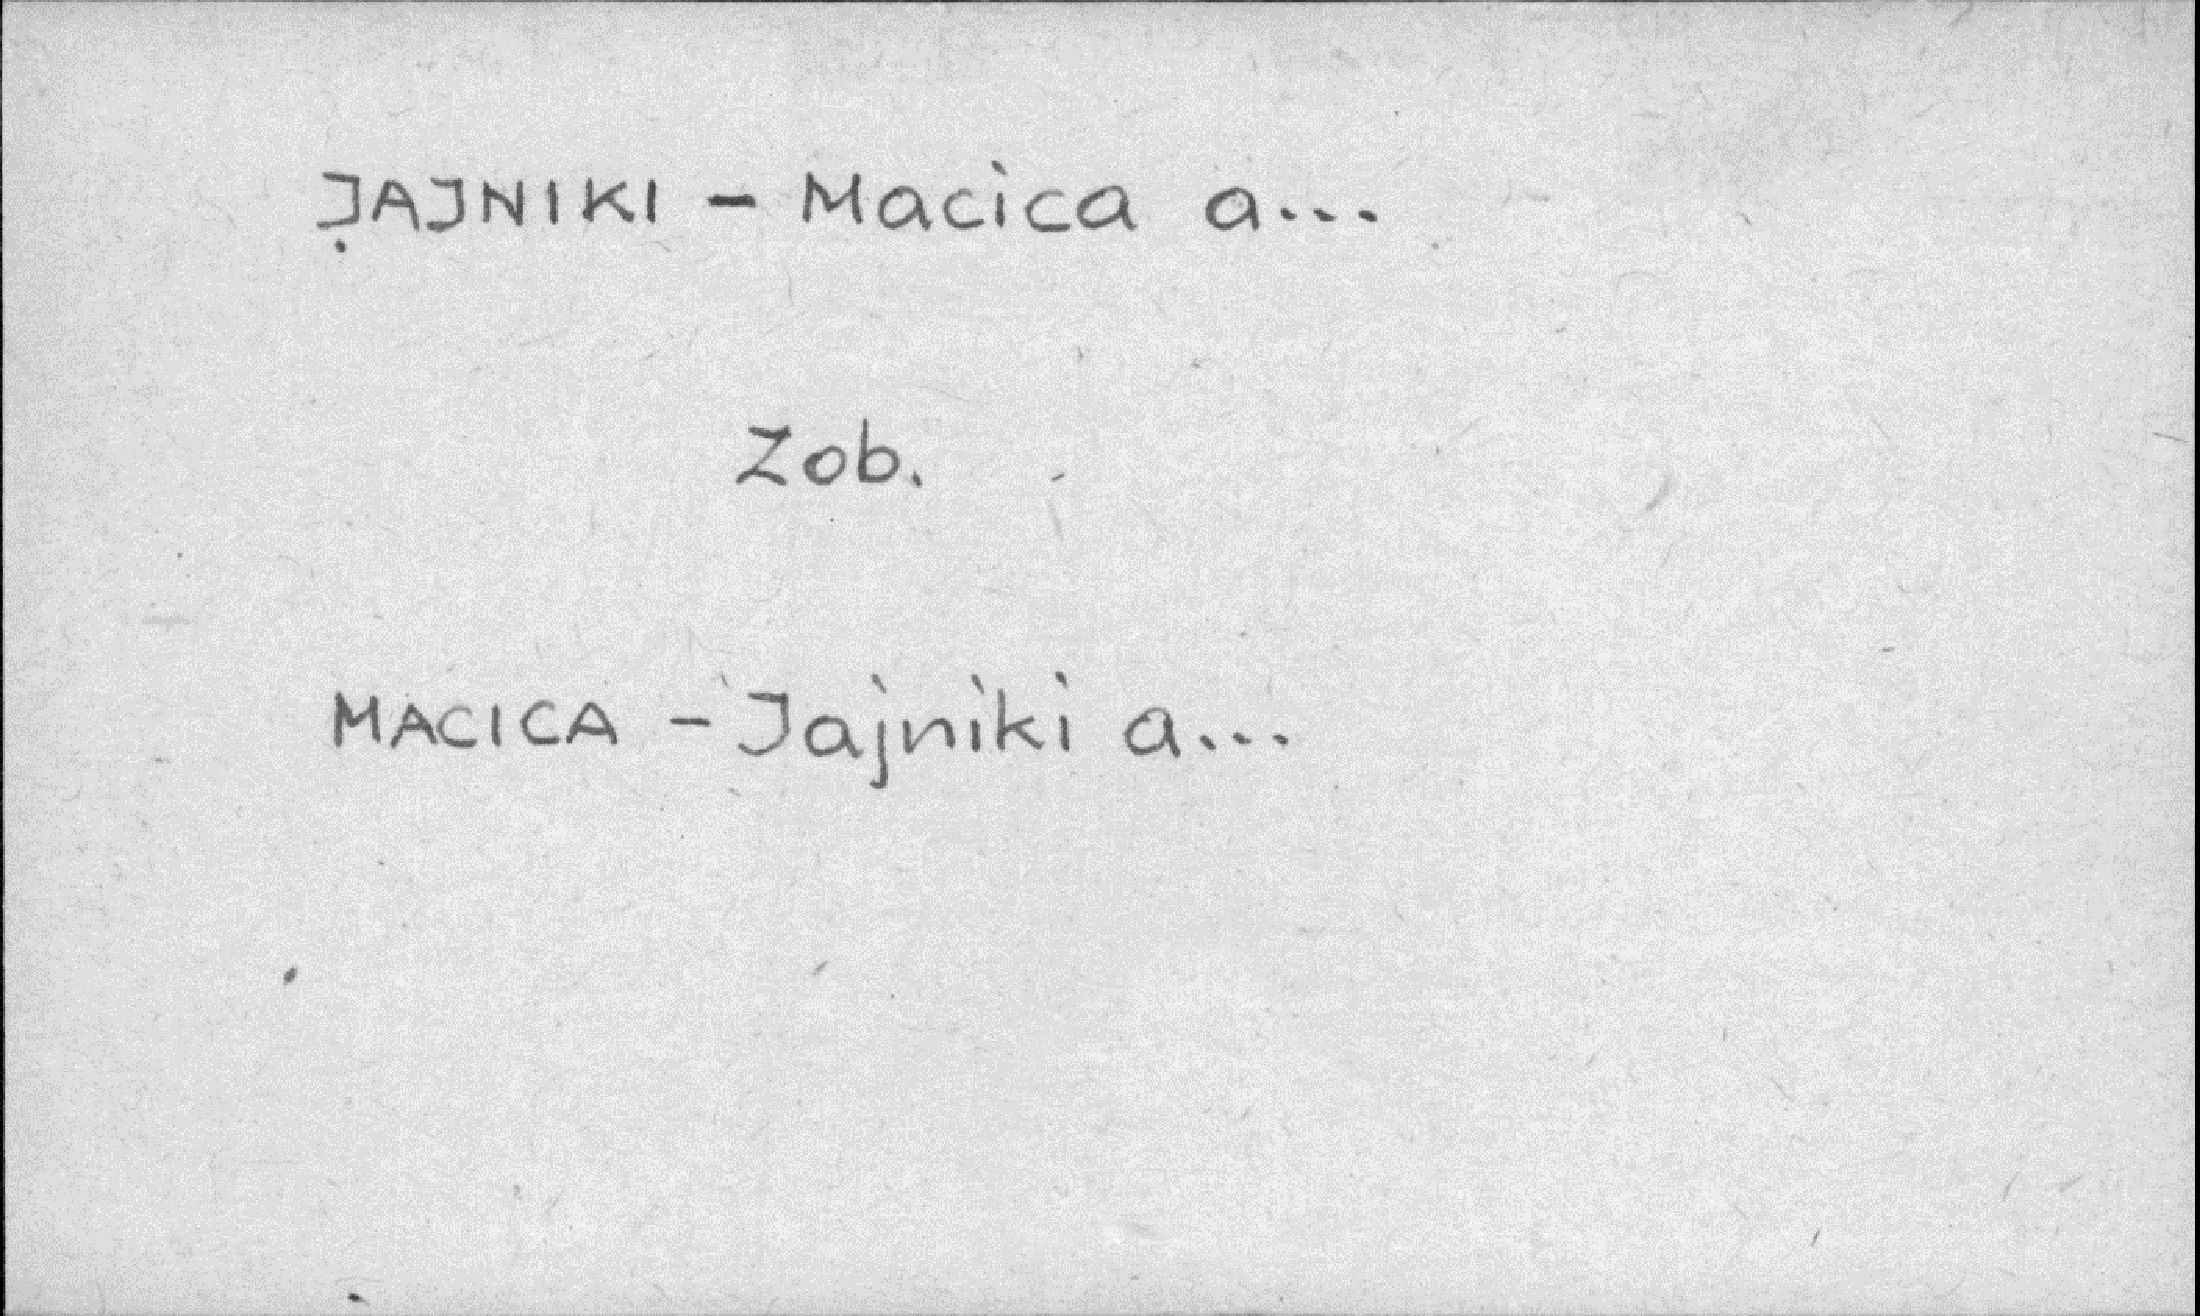 JAJNIKI - Macica a...
Zob.
MACICA - Jajniki a...